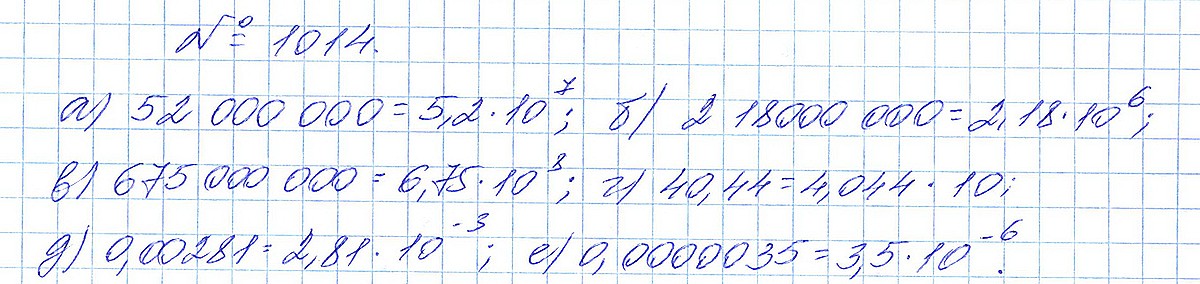 № 1014.
а) 52 000 000 = 5,2 · 10⁷; б) 2 18000 000 = 2,18 · 10⁶;
в) 675 000 000 = 6,75 · 10⁸; г) 40,44 = 4,044 · 10;
д) 0,00281 = 2,81 · 10⁻³; е) 0,0000035 = 3,5 · 10⁻⁶.